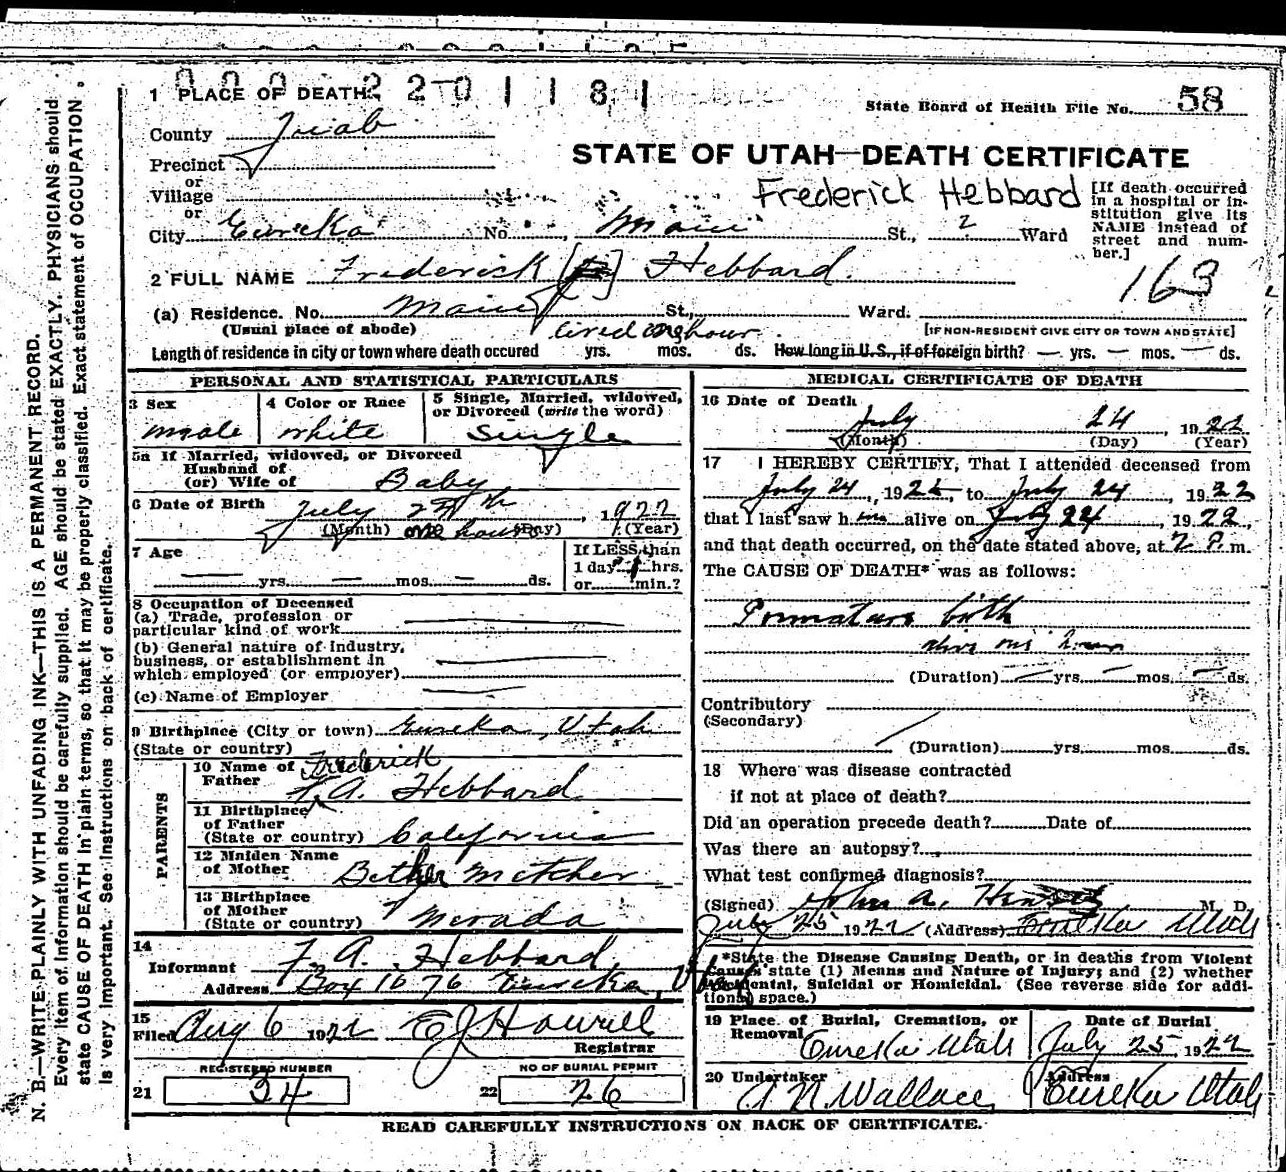 000 2201181
1 PLACE OF DEATH
State Board of Health File No. 58
County Juab
STATE OF UTAH—DEATH CERTIFICATE
Precinct
or
Village
or
Frederick Hebbard
[If death occurred in a hospital or institution give its NAME instead of street and number.]
City Eureka No. Main St., 2 Ward
163
2 FULL NAME Frederick Hebbard.
(a) Residence. No. Main St., Ward.
(Usual place of abode) lived one hour [IF NON-RESIDENT GIVE CITY OR TOWN AND STATE]
Length of residence in city or town where death occured yrs. mos. ds. How long in U.S., if of foreign birth? — yrs. — mos. — ds.
PERSONAL AND STATISTICAL PARTICULARS
3 Sex male
4 Color or Race white
5 Single, Married, widowed, or Divorced (write the word) Single
5a If Married, widowed, or Divorced
Husband of
(or) Wife of Baby
6 Date of Birth July 24th, 1922
(Month) (Day) (Year)
one hour
7 Age — yrs. — mos. — ds.
If LESS than 1 day 1 hrs. or min.?
8 Occupation of Deceased
(a) Trade, profession or
particular kind of work
(b) General nature of industry,
business, or establishment in
which employed (or employer)
(c) Name of Employer
9 Birthplace (City or town) Eureka, Utah
(State or country)
PARENTS
10 Name of Father Frederick
F. A. Hebbard
11 Birthplace of Father (State or country) California
12 Maiden Name of Mother
13 Birthplace of Mother (State or country) Nevada
14
Informant F. A. Hebbard
Address Box 1076 Eureka, Utah
15
Filed Aug 6 1922 Registrar
REGISTERED NUMBER
21 34
NO OF BURIAL PERMIT
22 26
MEDICAL CERTIFICATE OF DEATH
16 Date of Death
July 24, 1922
(Month) (Day) (Year)
17 I HEREBY CERTIFY, That I attended deceased from
July 24, 1922, to July 24, 1922
that I last saw him alive on July 24, 1922,
and that death occurred, on the date stated above, at 2 P.m.
The CAUSE OF DEATH* was as follows:
Premature birth
alive one hour
(Duration) — yrs. — mos. — ds.
Contributory
(Secondary)
(Duration) yrs. mos. ds.
18 Where was disease contracted
if not at place of death?
Did an operation precede death? Date of
Was there an autopsy?
What test confirmed diagnosis?
(Signed) John A. M. D.
July 25 1922 (Address) Eureka Utah
*State the Disease Causing Death, or in deaths from Violent
Causes state (1) Means and Nature of Injury; and (2) whether
Accidental, Suicidal or Homicidal. (See reverse side for addi-
tional space.)
19 Place of Burial, Cremation, or Removal Eureka Utah
Date of Burial July 25, 1922
20 Undertaker A. N. Wallace
Address Eureka Utah
READ CAREFULLY INSTRUCTIONS ON BACK OF CERTIFICATE.
N. B.—WRITE PLAINLY WITH UNFADING INK—THIS IS A PERMANENT RECORD.
Every item of information should be carefully supplied. AGE should be stated EXACTLY. PHYSICIANS should
state CAUSE OF DEATH in plain terms, so that it may be properly classified. Exact statement of OCCUPATION
is very important. See instructions on back of certificate.